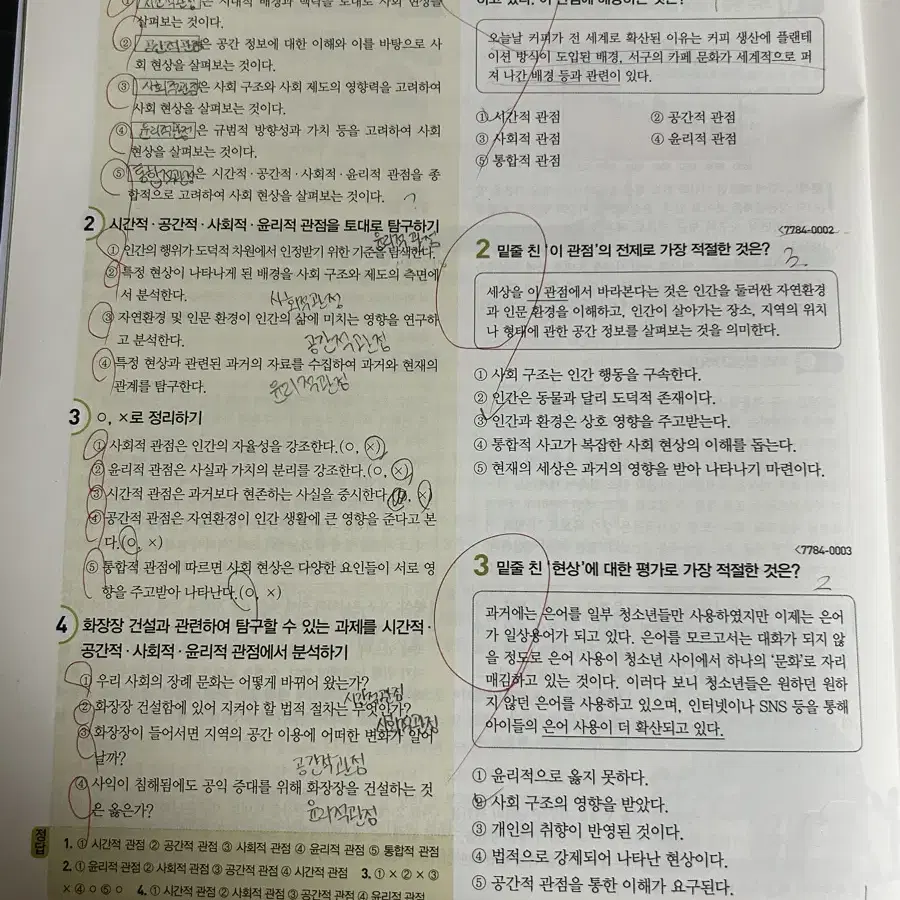 ① 시간적관점은 시대적 배경과 맥락을 토대로 사회 현상을
살펴보는 것이다.
② 공간적관점은 공간 정보에 대한 이해와 이를 바탕으로 사
회 현상을 살펴보는 것이다.
③ 사회적관점은 사회 구조와 사회 제도의 영향력을 고려하여
사회 현상을 살펴보는 것이다.
④ 윤리적관점은 규범적 방향성과 가치 등을 고려하여 사회
현상을 살펴보는 것이다.
⑤ 통합적관점은 시간적·공간적·사회적·윤리적 관점을 종
합적으로 고려하여 사회 현상을 살펴보는 것이다.
2 시간적·공간적·사회적·윤리적 관점을 토대로 탐구하기
① 인간의 행위가 도덕적 차원에서 인정받기 위한 기준을 탐색한다.
윤리적관점
② 특정 현상이 나타나게 된 배경을 사회 구조와 제도의 측면에
서 분석한다.
사회적관점
③ 자연환경 및 인문 환경이 인간의 삶에 미치는 영향을 연구하
고 분석한다.
공간적관점
④ 특정 현상과 관련된 과거의 자료를 수집하여 과거와 현재의
관계를 탐구한다.
윤리적관점
3 ○, ×로 정리하기
① 사회적 관점은 인간의 자율성을 강조한다.(○, ×)
② 윤리적 관점은 사실과 가치의 분리를 강조한다.(○, ×)
③ 시간적 관점은 과거보다 현존하는 사실을 중시한다.(○, ×)
④ 공간적 관점은 자연환경이 인간 생활에 큰 영향을 준다고 본
다.(○, ×)
⑤ 통합적 관점에 따르면 사회 현상은 다양한 요인들이 서로 영
향을 주고받아 나타난다.(○, ×)
4 화장장 건설과 관련하여 탐구할 수 있는 과제를 시간적·
공간적·사회적·윤리적 관점에서 분석하기
① 우리 사회의 장례 문화는 어떻게 바뀌어 왔는가?
시간적관점
② 화장장 건설함에 있어 지켜야 할 법적 절차는 무엇인가?
사회적관점
③ 화장장이 들어서면 지역의 공간 이용에 어떠한 변화가 일어
날까?
공간적관점
④ 사익이 침해됨에도 공익 증대를 위해 화장장을 건설하는 것
은 옳은가?
윤리적관점
정답
1. ① 시간적 관점 ② 공간적 관점 ③ 사회적 관점 ④ 윤리적 관점 ⑤ 통합적 관점
2. ① 윤리적 관점 ② 사회적 관점 ③ 공간적 관점 ④ 시간적 관점 3. ① × ② × ③
× ④ ○ ⑤ ○ 4. ① 시간적 관점 ② 사회적 관점 ③ 공간적 관점 ④ 윤리적 관점
오늘날 커피가 전 세계로 확산된 이유는 커피 생산에 플랜테
이션 방식이 도입된 배경, 서구의 카페 문화가 세계적으로 퍼
져 나간 배경 등과 관련이 있다.
① 시간적 관점 ② 공간적 관점
③ 사회적 관점 ④ 윤리적 관점
⑤ 통합적 관점
<7784-0002
2 밑줄 친 '이 관점'의 전제로 가장 적절한 것은? 3.
세상을 이 관점에서 바라본다는 것은 인간을 둘러싼 자연환경
과 인문 환경을 이해하고, 인간이 살아가는 장소, 지역의 위치
나 형태에 관한 공간 정보를 살펴보는 것을 의미한다.
① 사회 구조는 인간 행동을 구속한다.
② 인간은 동물과 달리 도덕적 존재이다.
③ 인간과 환경은 상호 영향을 주고받는다.
④ 통합적 사고가 복잡한 사회 현상의 이해를 돕는다.
⑤ 현재의 세상은 과거의 영향을 받아 나타나기 마련이다.
<7784-0003
3 밑줄 친 '현상'에 대한 평가로 가장 적절한 것은? 2
과거에는 은어를 일부 청소년들만 사용하였지만 이제는 은어
가 일상용어가 되고 있다. 은어를 모르고서는 대화가 되지 않
을 정도로 은어 사용이 청소년 사이에서 하나의 '문화'로 자리
매김하고 있는 것이다. 이러다 보니 청소년들은 원하던 원하
지 않던 은어를 사용하고 있으며, 인터넷이나 SNS 등을 통해
아이들의 은어 사용이 더 확산되고 있다.
① 윤리적으로 옳지 못하다.
② 사회 구조의 영향을 받았다.
③ 개인의 취향이 반영된 것이다.
④ 법적으로 강제되어 나타난 현상이다.
⑤ 공간적 관점을 통한 이해가 요구된다.